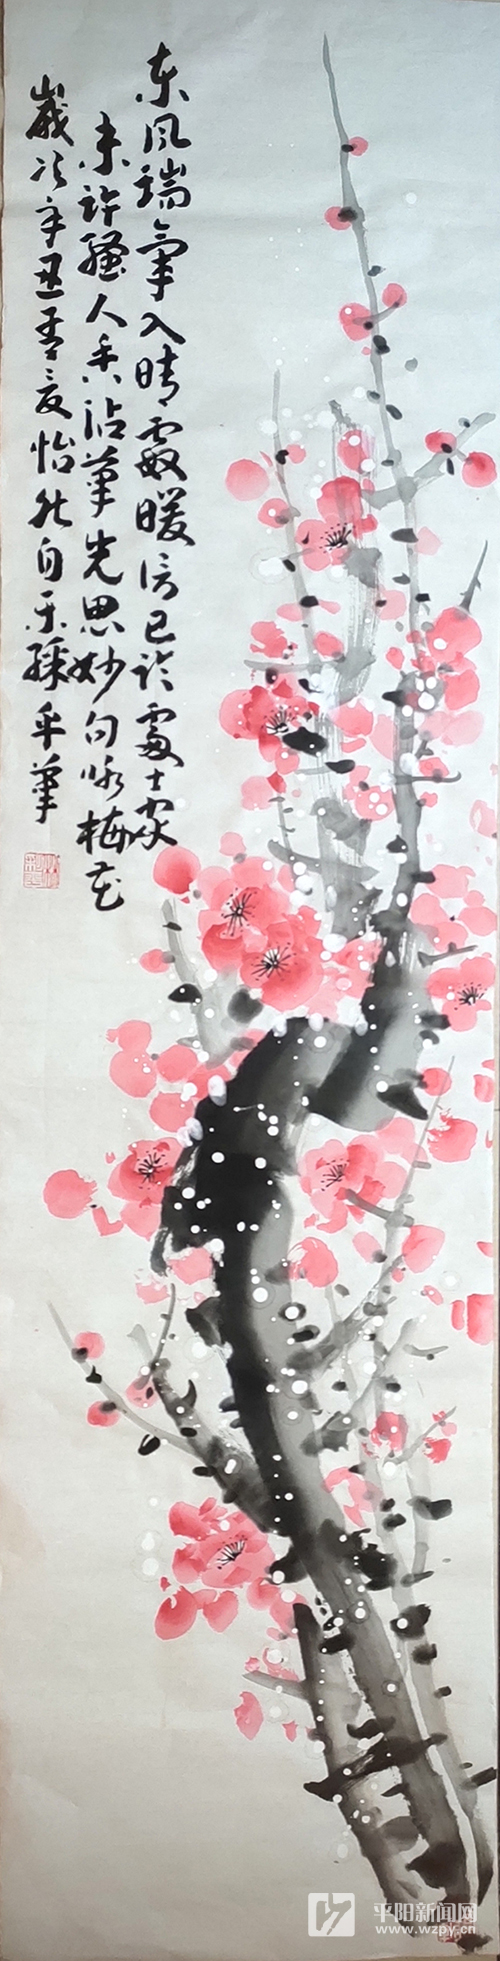 东风瑞氣入晴霞暖信已临處士家
未许骚人香沾笔先思妙句咏梅花
歲次辛丑季夏怡然自乐平笔
平阳新闻网
www.wzpy.cn